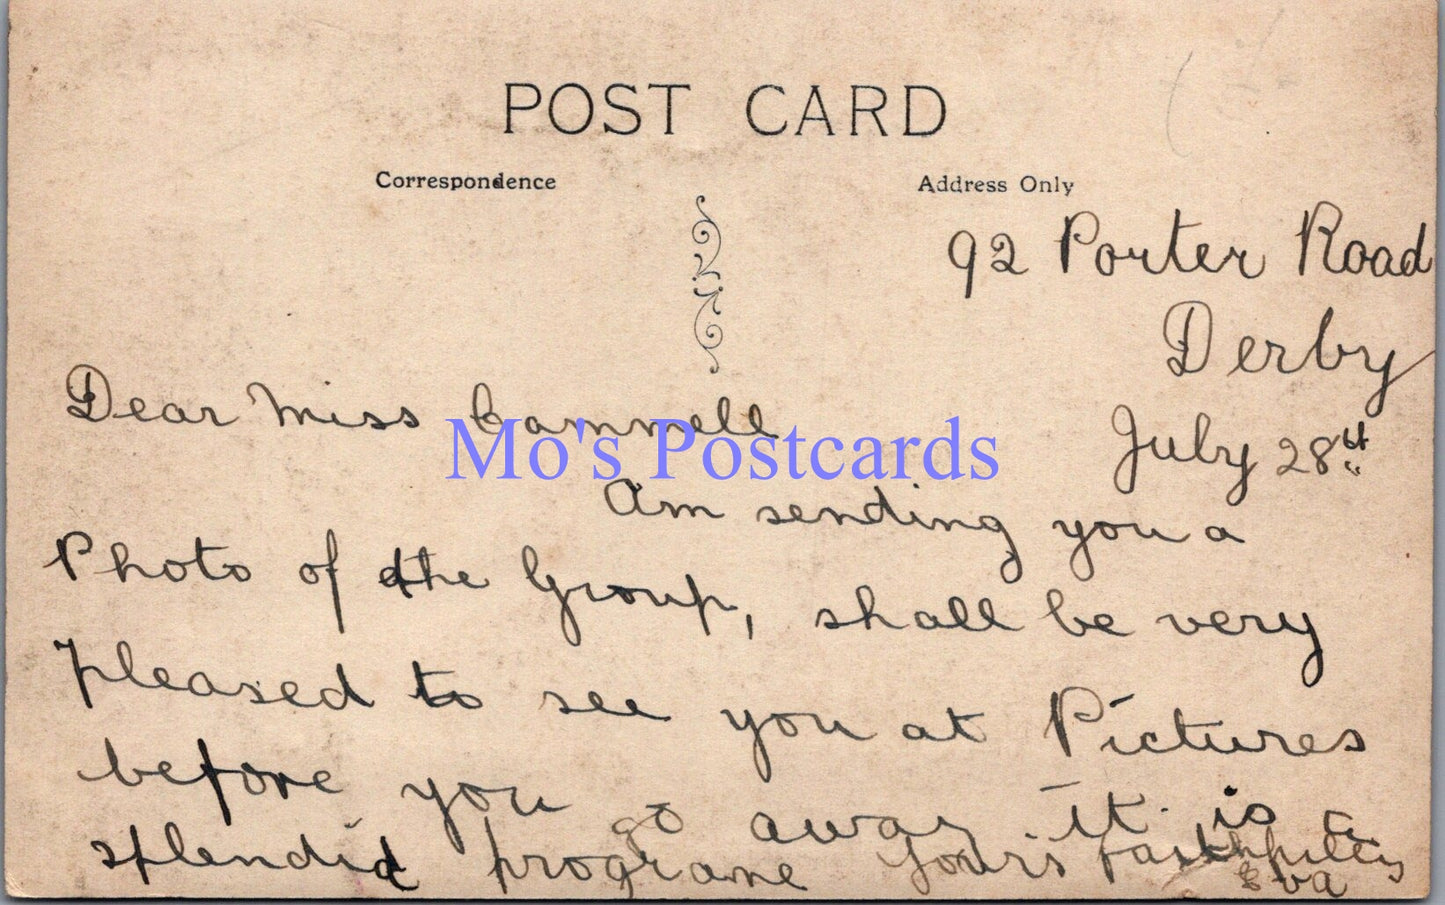 POST CARD
Correspondence
Address Only
92 Porter Road
Derby
July 28th
Dear Miss Cammell
Mo's Postcards
Am sending you a
Photo of the Group, shall be very
pleased to see you at Pictures
before you go away. it is
splendid programe Yours Faithfully
Eva